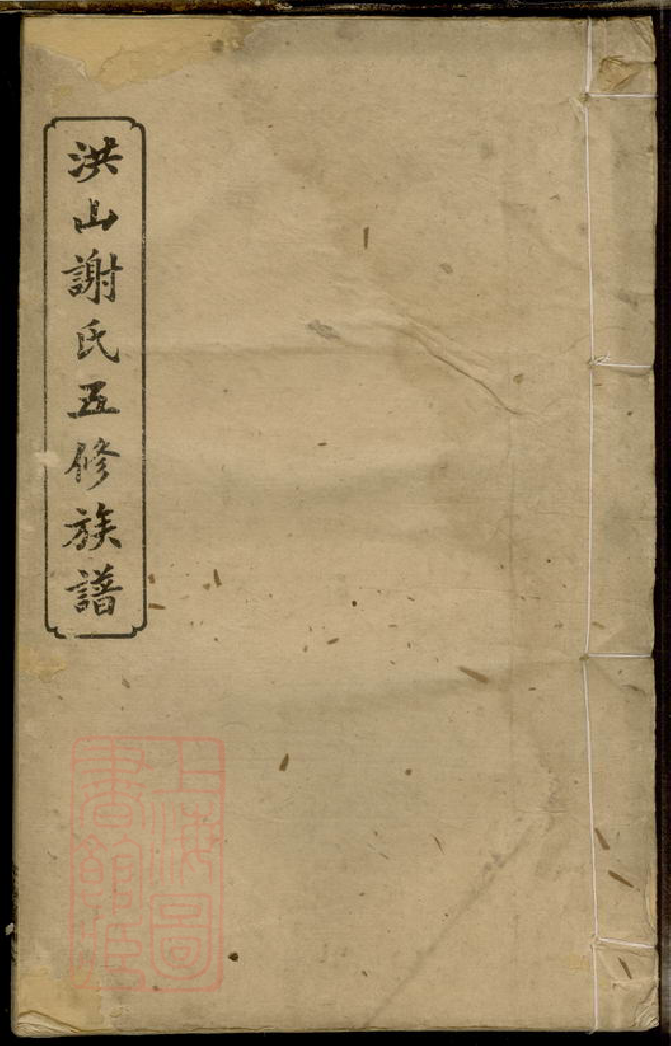 洪山謝氏五修族譜
上海圖
書館藏